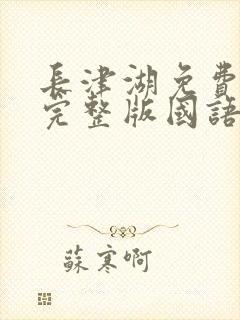 長津湖免費
完整版國語
蘇寒啊